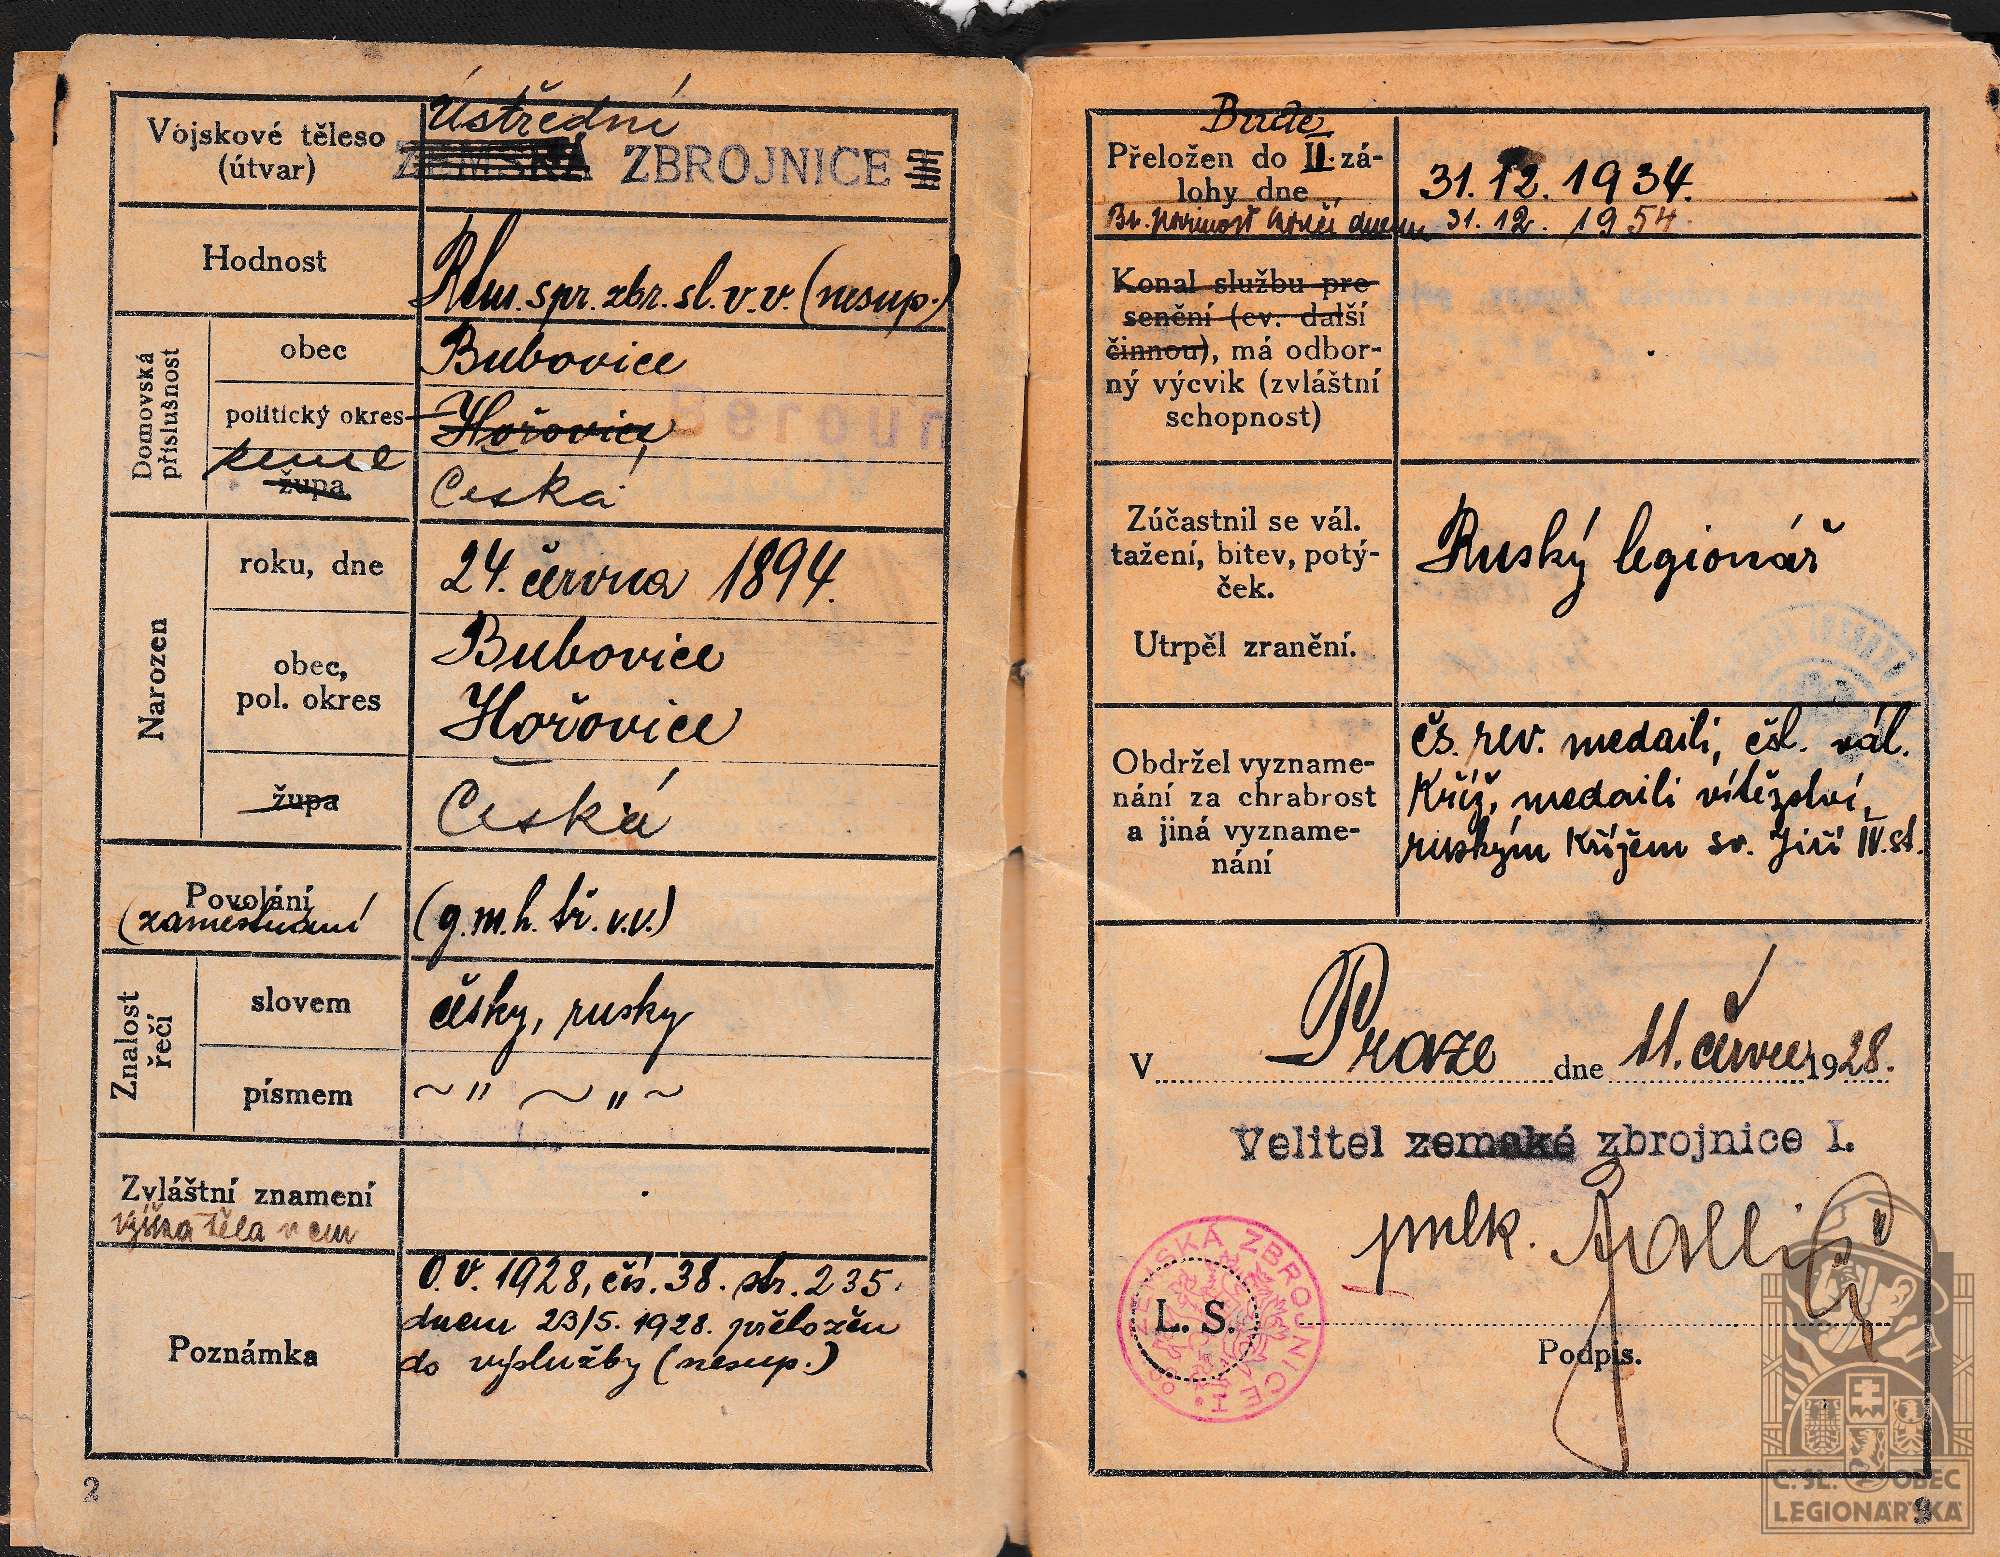 Vojskové těleso
(útvar)
Ústřední
ZEMSKÁ ZBROJNICE
Hodnost
Rtm. spr. zbr. sl. v. v. (nesup.)
Domovská
příslušnost
obec
Bubovice
politický okres
Hořovice
Beroun
země
župa
Česká
Narozen
roku, dne
24. června 1894.
obec,
pol. okres
Bubovice
Hořovice
župa
Česká
Povolání
(zaměstnání
(g. m. h. tř. v. v.)
Znalost
řečí
slovem
česky, rusky
písmem
~ " ~ " ~
Zvláštní znamení
Výška těla v cm
Poznámka
O. V. 1928, čís. 38. str. 235.
dnem 23/5. 1928. přeložen
do výslužby (nesup.)
2
Bude
Přeložen do II. zá-
lohy dne
31. 12. 1934.
Br. povinnost končí dnem 31. 12. 1954.
Konal službu pre-
senění (ev. další
činnou), má odbor-
ný výcvik (zvláštní
schopnost)
Zúčastnil se vál.
tažení, bitev, potý-
ček.
Utrpěl zranění.
Ruský legionář
Obdržel vyzname-
nání za chrabrost
a jiná vyzname-
nání
čs. rev. medaili, čsl. vál.
Kříž, medaili vítězství,
ruským Křížem sv. Jiří IV. st.
V Praze dne 11. červce 1928.
Velitel zemské zbrojnice I.
pplk.
ZEMSKÁ ZBROJNICE
L. S.
Podpis.
9
Č. SL. OBEC
LEGIONÁŘSKÁ